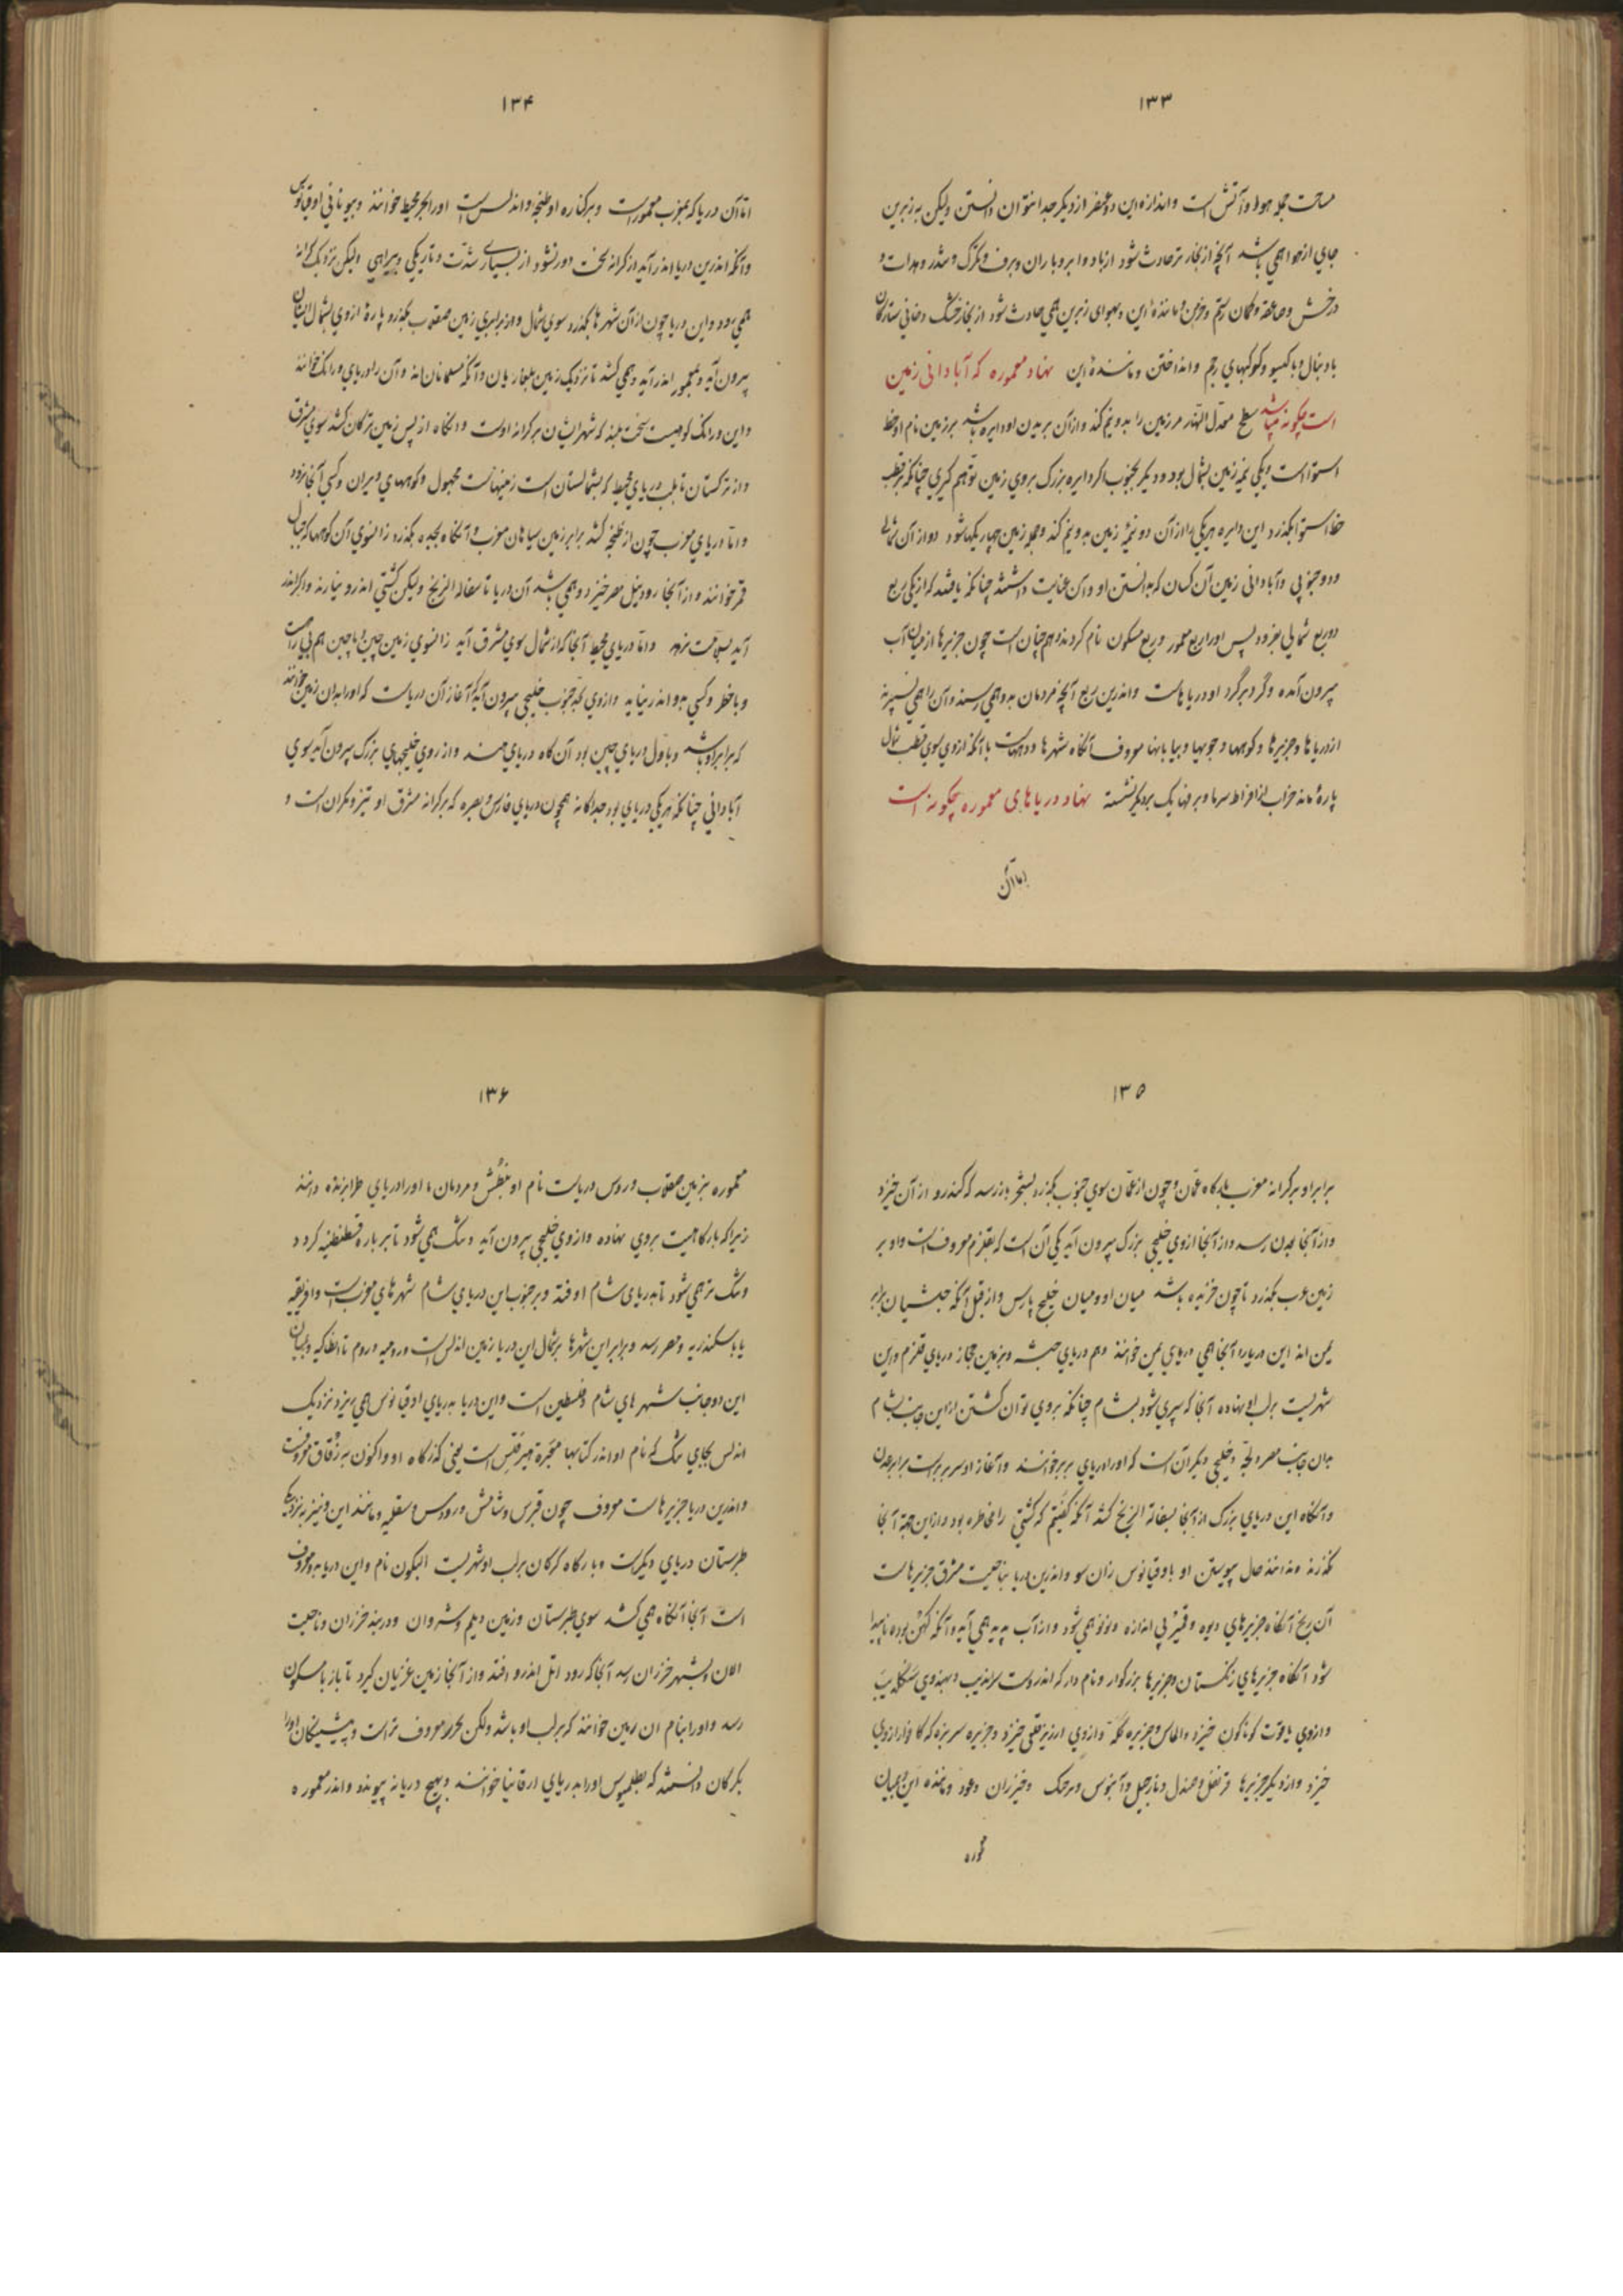 ۱۳۳
مساحت جمله هوا و آتش است و اندازه این دو عنصر از دیگر جدا نتوان دانستن ولیکن به زبرین
جای از هوا همی باشد آنچه از بخار تر حادث شود از باد و ابر و باران و برف و تگرگ و
درخش و صاعقه و کمان رستم و خرمن و مانندهٔ این و بهوای زبرین همی حادث شود از بخار خشک دخانی ستارگان
با دنبال و با گیسو و کوکبهای رجم و انداختن و مانندهٔ این نهاد معموره که آبادانی زمین
است چگونه میباشد سطح معدل النهار مر زمین را بدو نیم کند و از آن بریدن او دایره باشد بر زمین نام او خط
استوا است و یکی نیمه زمین بشمال بود و دیگر بجنوب اگر دایره بزرگ بروی زمین توهم کیری چنانکه بر قطب
خط استوا بگذرد این دایره هر یکی را از آن دو نیمهٔ زمین بدو نیم کند و جمله زمین چهار یکها شود دو از آن شمالی
و دو جنوبی و آبادانی زمین آن کسان که بدانستن او و آن عنایت داشتند چنانکه یافتند که از یکی ربع
دو ربع شمالی نبود پس او را ربع معمور و ربع مسکون نام کردند و هم چنان است چون جزیرها از میان آب
بیرون آمده و گرد بر گرد او دریاهاست و اندرین ربع آنچه مردمان بدو همی رسند و آن را همی
از دریاها و جزیرها و کوهها و جویها و بیابانها معروف آنگاه شهرها و دیهاست با آنکه ازوی سوی قطب شمال
پارهٔ ماند خراب از افراط سرما و برفها یک بر دیگر نشسته نهاد دریاهای معموره چگونه است
اما آن
۱۳۴
اما آن دریا که بمغرب معمور است و بر کناره او طنجه و اندلس است او را بحر محیط خوانند و بیونانی اوقیانوس
و آنکه اندرین دریا اندر آید از کرانه سخت دور نشود از بسیاری شدت و تاریکی و بیراهی ولیکن نزدیک کرانه
همی رود و این دریا چون از آن شهرها بگذرد سوی شمال و از برابری زمین صقلاب بگذرد پارهٔ ازوی بشمال ایشان
بیرون آید و بمعمور اندر آید و همی کشد تا نزدیک زمین بلغاریان و آنکه مسلمانان اند و آن را دریای ورانک خوانند
و این ورانک گروهیست سخت بلند که شهر ایشان بر کرانه اوست و آنگاه از پس زمین ترکان کشد سوی مشرق
و از ترکستان تا بلب دریای محیط که بشمالستان است زمینهاست مجهول و کوههای ویران و کسی آنجا نرود
و اما دریای مغرب چون از طنجه کشد برابر زمین سیاهان مغرب و آنگاه بجیده بگذرد زانسوی آن کوهها که جبال
قمر خوانند و از آنجا رود نیل مصر خیزد و همی باشد آن دریا تا سفاله الزنج ولیکن کشتی اندرو نیارند و اگر اندر
آید بسلامت نرهد و اما دریای محیط آنجا که از شمال سوی مشرق آید زانسوی زمین چین و ماچین هم بی راهست
و با خطر و کسی بدو اندر نیاید و ازوی بجنوب خلیجی بیرون آید که آغاز آن دریاست که او را بدان زمین خوانند
که برابر او باشد و باول دریای چین بود آن گاه دریای هند و از روی خلیجهای بزرگ بیرون آید سوی
آبادانی چنانکه هر یکی دریای بود جداگانه همچون دریای فارس و بصره که بر کرانه مشرق او تیز و مکران است و
۱۳۵
برابر او بر کرانه مغرب بارگاه عمان و چون از عمان سوی جنوب بگذرد بشحر باز رسد که کندرو از آن خیزد
و از آنجا بعدن رسد و از آنجا ازوی خلیجی بزرگ بیرون آید یکی آن است که بقلزم معروف است و او بر
زمین عرب بگذرد تا چون جزیره باشد میان او و میان خلیج پارس و از قبل آنکه حبشیان برابر
یمن اند این دریا را آنجا همی دریای یمن خوانند و هم دریای حبشه و بزمین حجاز دریای قلزم و این
شهریست بر لب او نهاده آنجا که سپری شود بشام چنانکه بروی توان گشتن از این جانب بشام
بدان جانب مصر و بجه و خلیجی دیگر آن است که او را دریای بربر خوانند و آغاز او سر بربر است برابر عدن
و آنگاه این دریای بزرگ از آنجا بسفالة الزنج کشد آنکه گفتیم که کشتی را مخاطره بود و از این جهة آنجا
نگذرند و ندانند حال پیوستن او باوقیانوس زان سو و اندرین دریا بناحیت مشرق جزیرهاست
آن زنج آنگاه جزیرهای دیوه و قمیر بی اندازه و نو نو همی شود و از آب پدید همی آید و آنکه کهن بوده ناپیدا
شود آنگاه جزیرهای زنگستان و جزیرها بزرگوار و نام دار که اندروست سرندیب و بهندوی سنگلدیپ
و ازوی یاقوت گوناگون خیزد و الماس و جزیره کله و ازوی ارزیز قلعی خیزد و جزیره سریزه که کافور ازوی
خیزد و از دیگر جزیرها قرنفل و صندل و نارجیل و آبنوس و خیزران و عود و مانندهٔ این و بمیان
معموره
۱۳۶
معموره بزمین صقلاب و روس دریاست نام او بنطش و مردمان ما او را دریای طرابزنده دانند
زیرا که بارگاهیست بروی نهاده و ازوی خلیجی بیرون آید و تنگ همی شود تا بر باره قسطنطنیه گرد و
و تنگ تر همی شود تا بدریای شام اوفتد و بر جنوب این دریای شام شهرهای مغرب است و افریقیه
یا باسکندریه و مصر رسد و برابر این شهرها بر شمال این دریا زمین اندلس است و رومیه و روم تا انطاکیه و بمیان
این دو جانب شهرهای شام و فلسطین است و این دریا بدریای اوقیانوس همی ریزد نزدیک
اندلس بجای تنگ که نام او اندر کتابها معبرة هیرقلس است یعنی گذرگاه او و اکنون به زقاق معروفست
و اندرین دریا جزیرهاست معروف چون قبرس و شامش و رودس و سقلیه و مانند این و نیز به نزدیکی
طبرستان دریای دیگرست و بارگاه گرگان بر لب او شهریست البسکون نام و این دریا بدو معروف
است آنجا آنگاه همی کشد سوی طبرستان و زمین دیلم و شروان و دربند خزران و ناحیت
الان و بشهر خزران رسد آنجا که رود اتل اندرو افتد و از آنجا زمین غزیان گیرد تا باز بابسکون
رسد و او را بنام آن زمین خوانند که بر لب او باشد ولکن بخزر معروف تر است و پیشینگان او را
بگرگان دانستند که بطلمیوس او را بدریای ارقانیا خوانند و بهیچ دریا نه پیوندد و اندر معموره